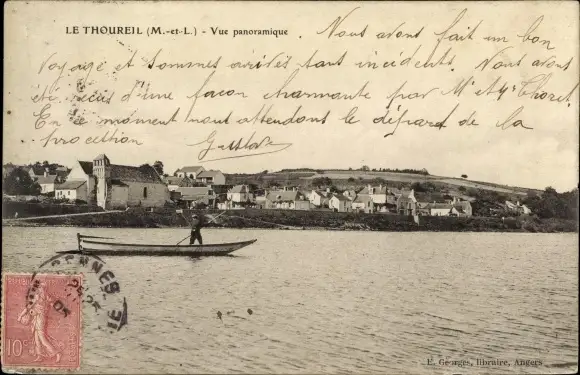 LE THOUREIL (M.-et-L.) - Vue panoramique
Nous avons fait un bon
voyage et sommes arrivés sans incidents. Nous avons
été reçus d'une façon charmante par Mr et Me Thoret
En ce moment nous attendons le départ de la
procession
Gustave
RENNES
10c
E. Georges, libraire, Angers